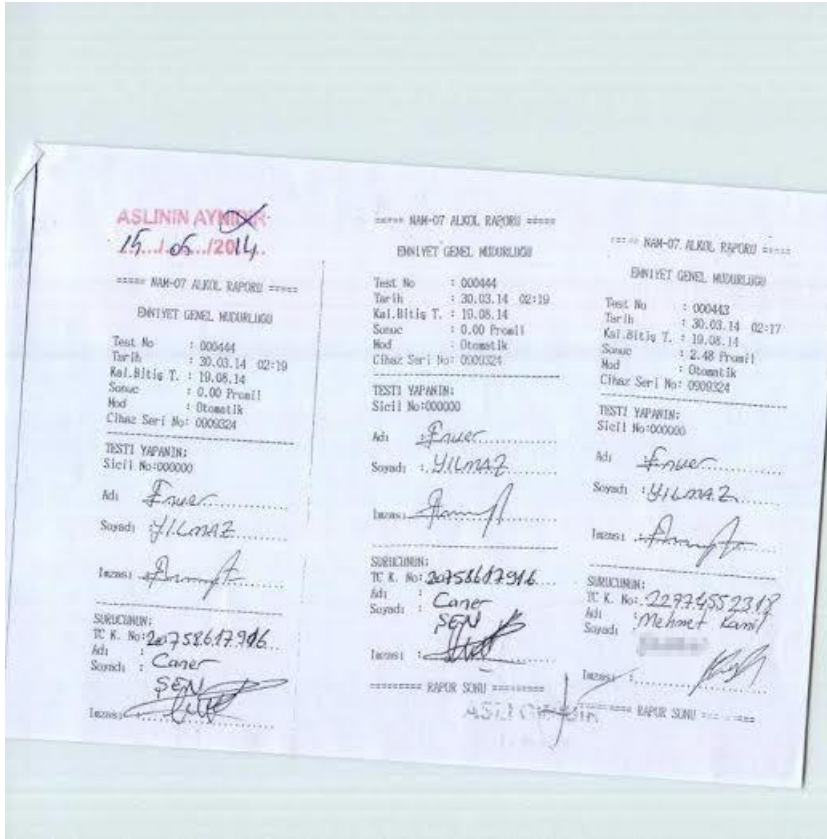 ASLININ AYNIDIR
15.../..05.../2014..
===== NAM-07 ALKOL RAPORU =====
EMNIYET GENEL MUDURLUGU
Test No : 000444
Tarih : 30.03.14 02:19
Kal.Bitiş T. : 19.08.14
Sonuc : 0.00 Promil
Mod : Otomatik
Cihaz Seri No: 0009324
TESTI YAPANIN:
Sicil No:000000
Adı Enver
Soyadı : YILMAZ
Imzası :
SURUCUNUN:
TC K. No: 20758617916
Adı : Caner
Soyadı : ŞEN
Imzası :
===== NAM-07 ALKOL RAPORU =====
EMNIYET GENEL MUDURLUGU
Test No : 000444
Tarih : 30.03.14 02:19
Kal.Bitiş T. : 19.08.14
Sonuc : 0.00 Promil
Mod : Otomatik
Cihaz Seri No: 0009324
TESTI YAPANIN:
Sicil No:000000
Adı Enver
Soyadı : YILMAZ
Imzası :
SURUCUNUN:
TC K. No: 20758617916
Adı : Caner
Soyadı : ŞEN
Imzası :
========= RAPOR SONU =========
ASLI GİBİDİR
===== NAM-07 ALKOL RAPORU =====
EMNIYET GENEL MUDURLUGU
Test No : 000443
Tarih : 30.03.14 02:17
Kal.Bitiş T. : 19.08.14
Sonuc : 2.48 Promil
Mod : Otomatik
Cihaz Seri No: 0009324
TESTI YAPANIN:
Sicil No:000000
Adı Enver
Soyadı : YILMAZ
Imzası :
SURUCUNUN:
TC K. No: 22974552318
Adı : Mehmet Kamil
Soyadı :
Imzası :
========= RAPOR SONU =========